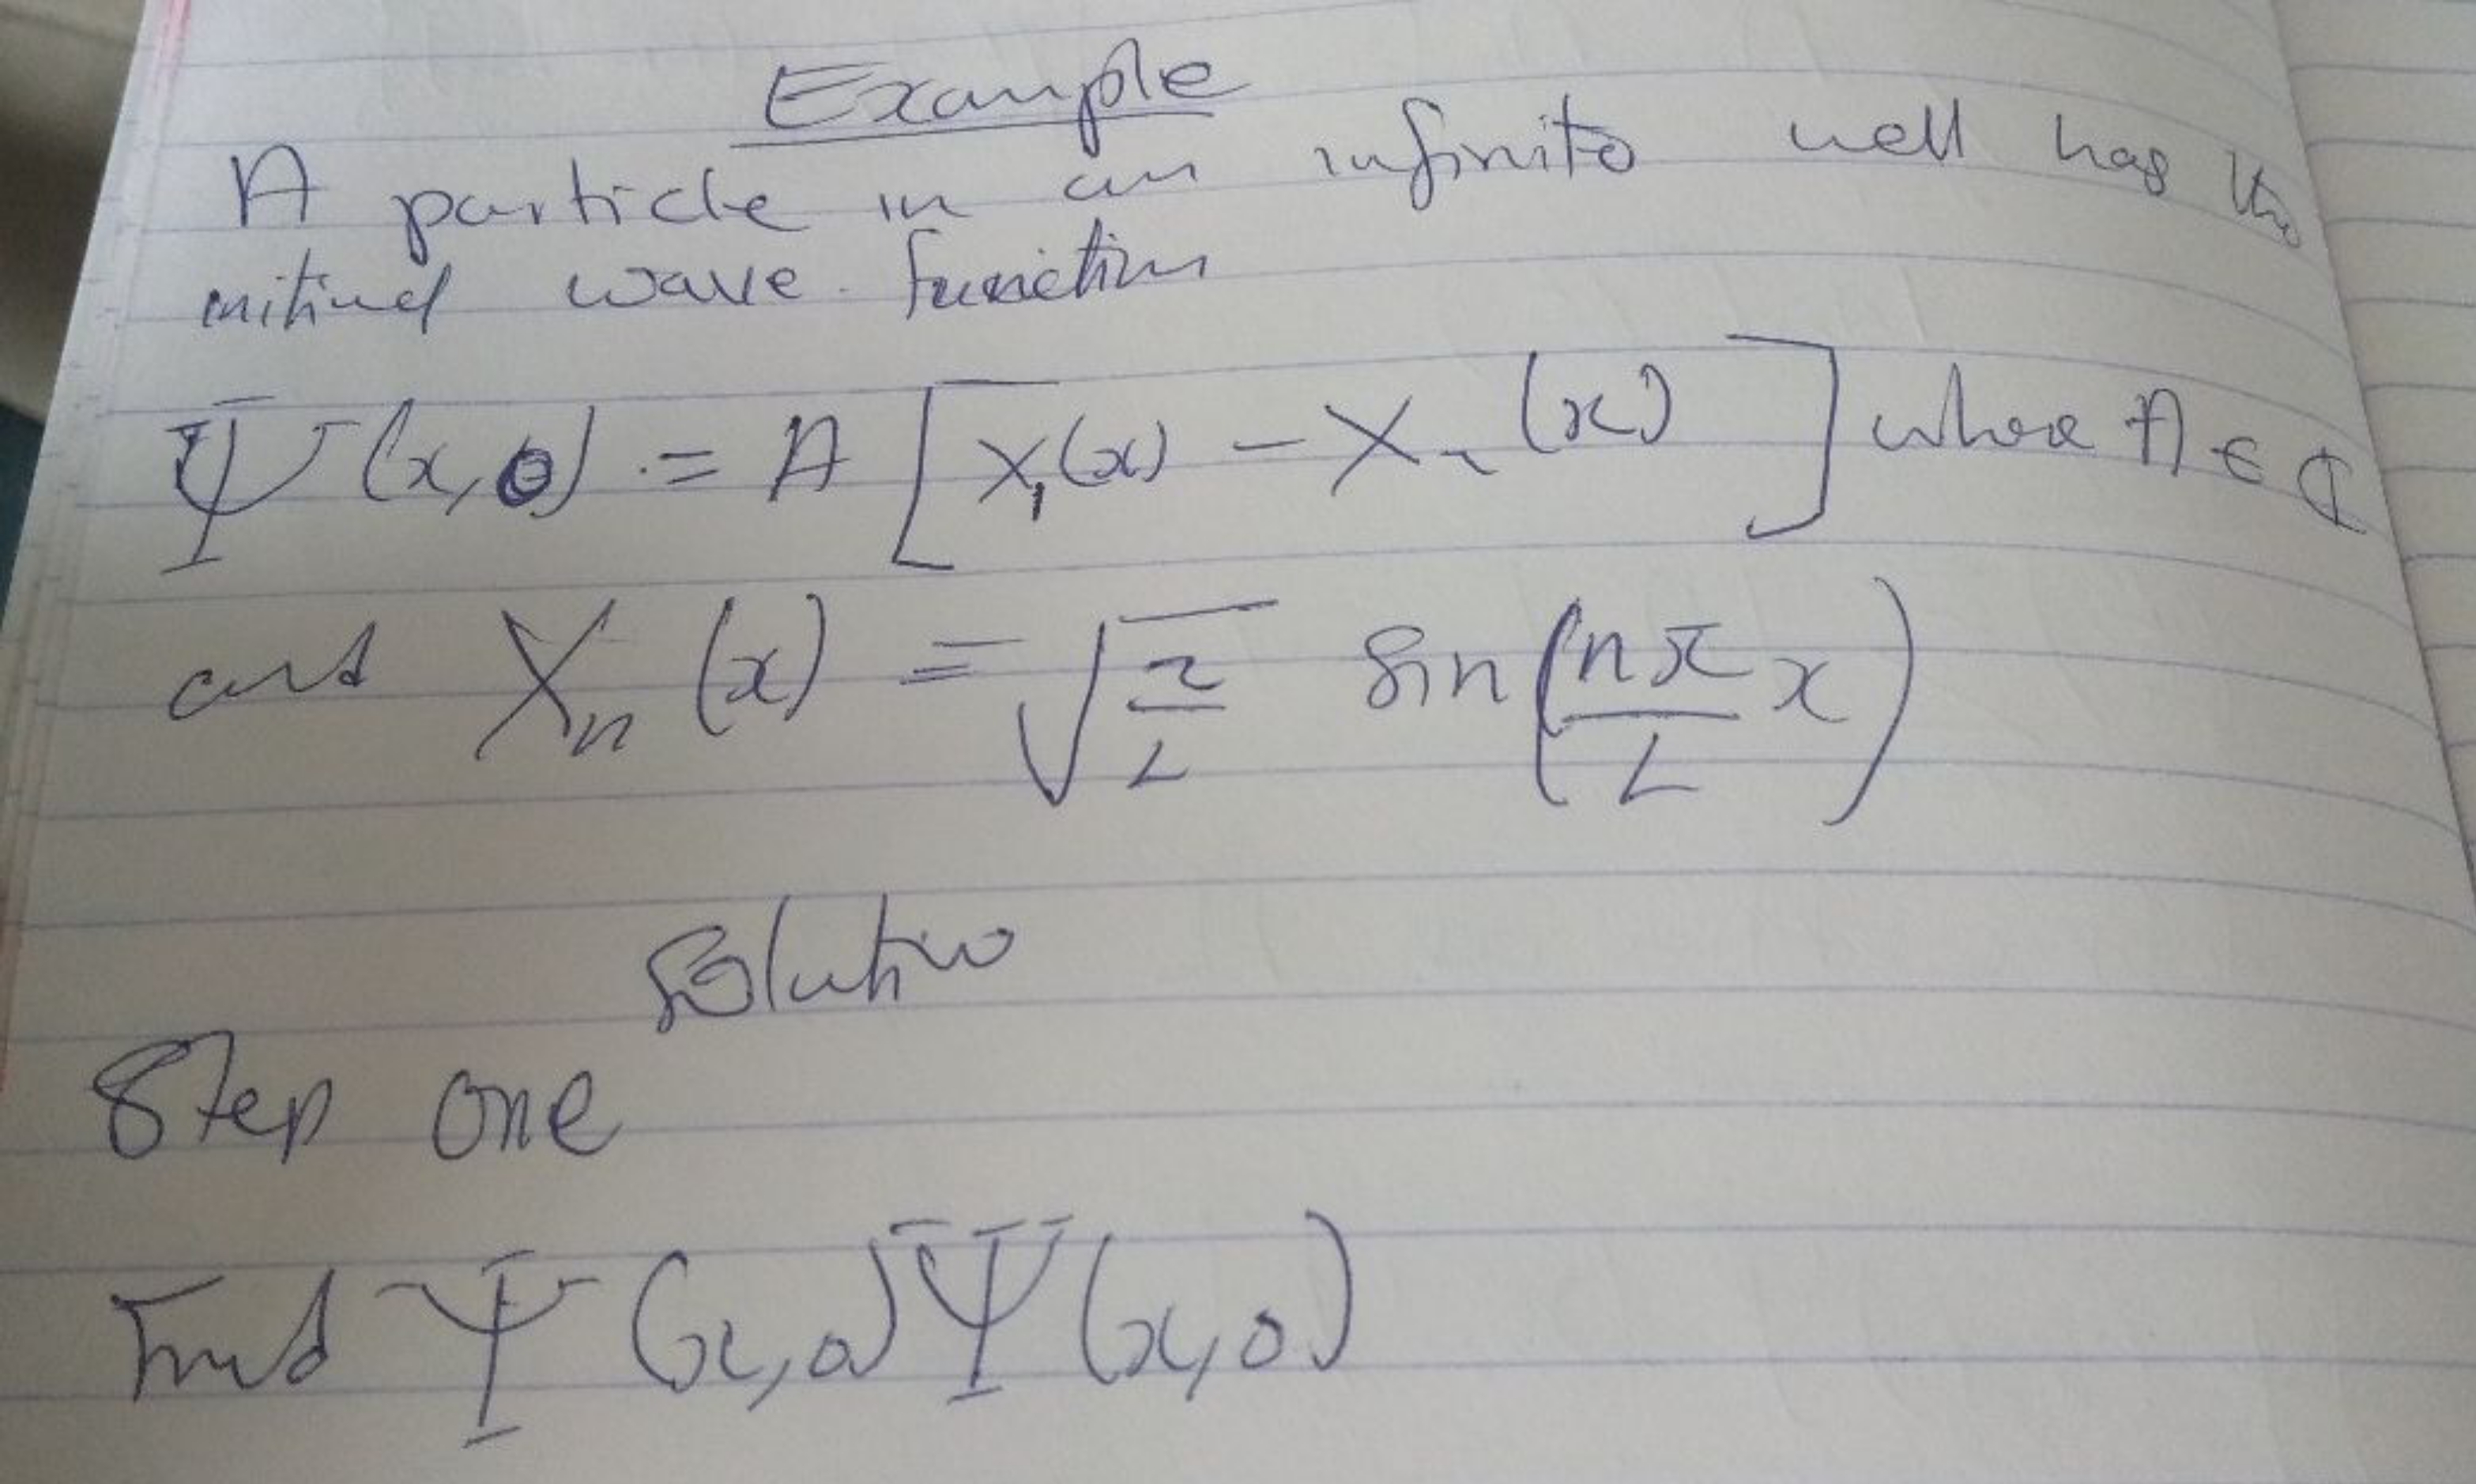 Example
A particle in an infinite well has the
initial wave function
Ψ(x,0) = A [X₁(x) − X₂(x)] where A ∈ ℂ
and Xₙ(x) = √(2/L) sin(nπ/L x)
Solution
Step one
Find Ψ(x,0) Ψ(x,0)